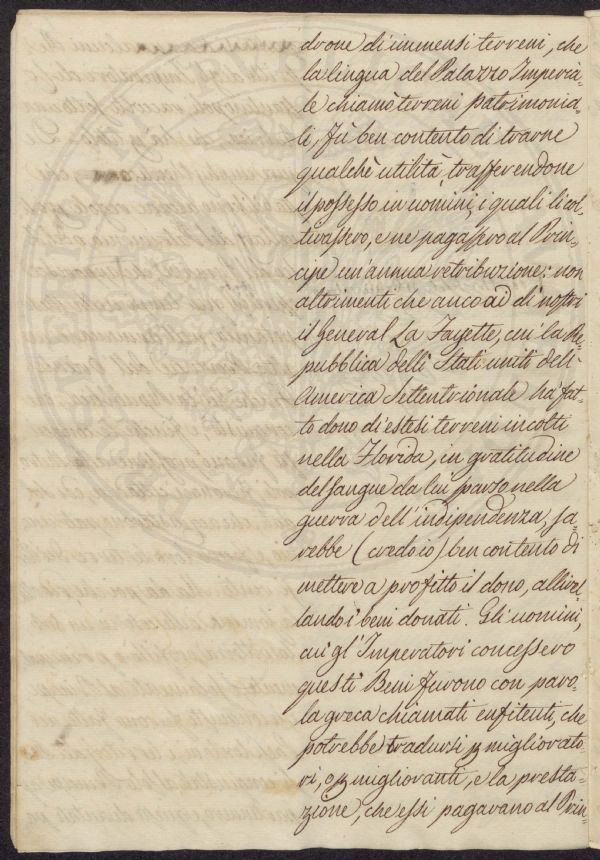 drone di immensi terreni, che
la lingua del Palazzo Imperia-
le chiamò terreni patrimonia-
li, fù ben contento di trarne
qualchè utilità, trasferendone
il possesso in uomini, i quali li col-
tivassero, e ne pagassero al Prin-
cipe un'annua retribuzione: non
altrimenti che anco ad dì nostri
il General La Fayette, cui la Re-
pubblica delli Stati uniti dell'
America Settentrionale ha fat-
to dono di estesi terreni incolti
nella Florida, in gratitudine
del sangue da lui parso nella
guerra dell'indipendenza, sa-
rebbe (credo io) ben contento di
mettere a profitto il dono, allivel-
lando i beni donati. Gli uomini,
cui gl'Imperatori concessero
questi Beni furono con paro-
la greca chiamati enfitenti, che
potrebbe tradursi p migliorato-
ri, o p miglioranti, e la presta-
zione, che essi pagavano al Prin-